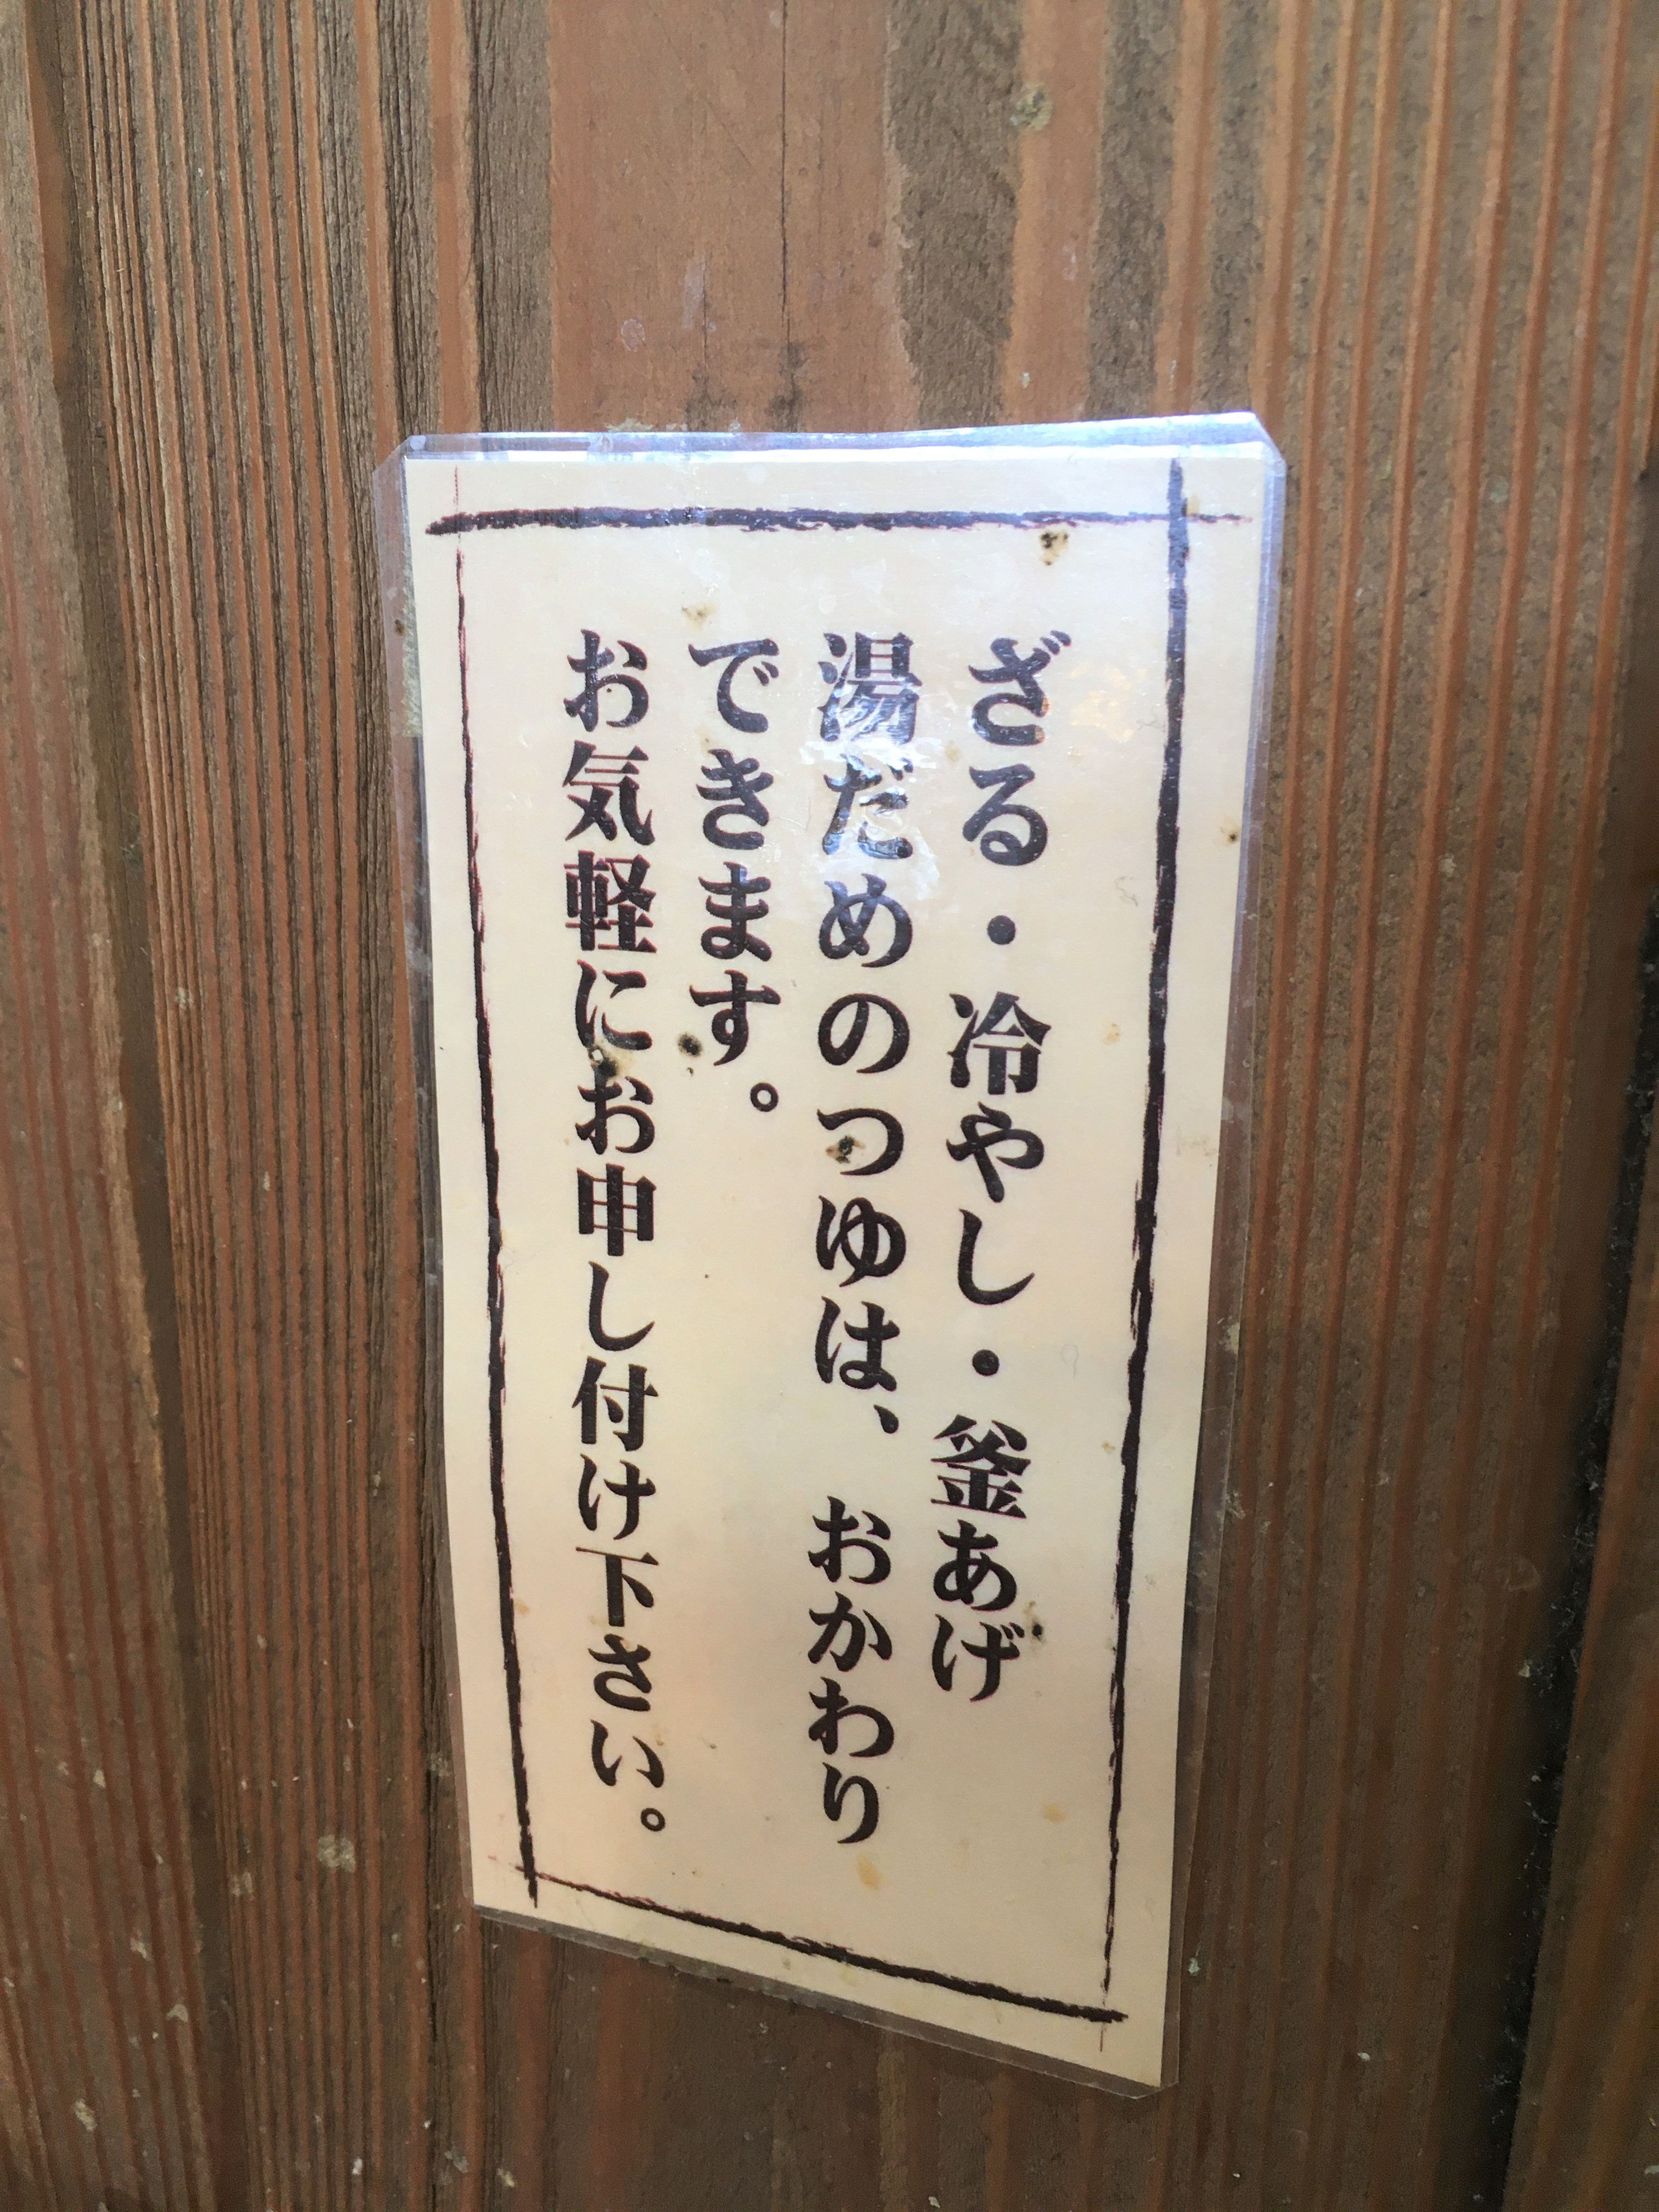 ざる・冷やし・釜あげ
湯だめのつゆは、おかわり
できます。
お気軽にお申し付け下さい。